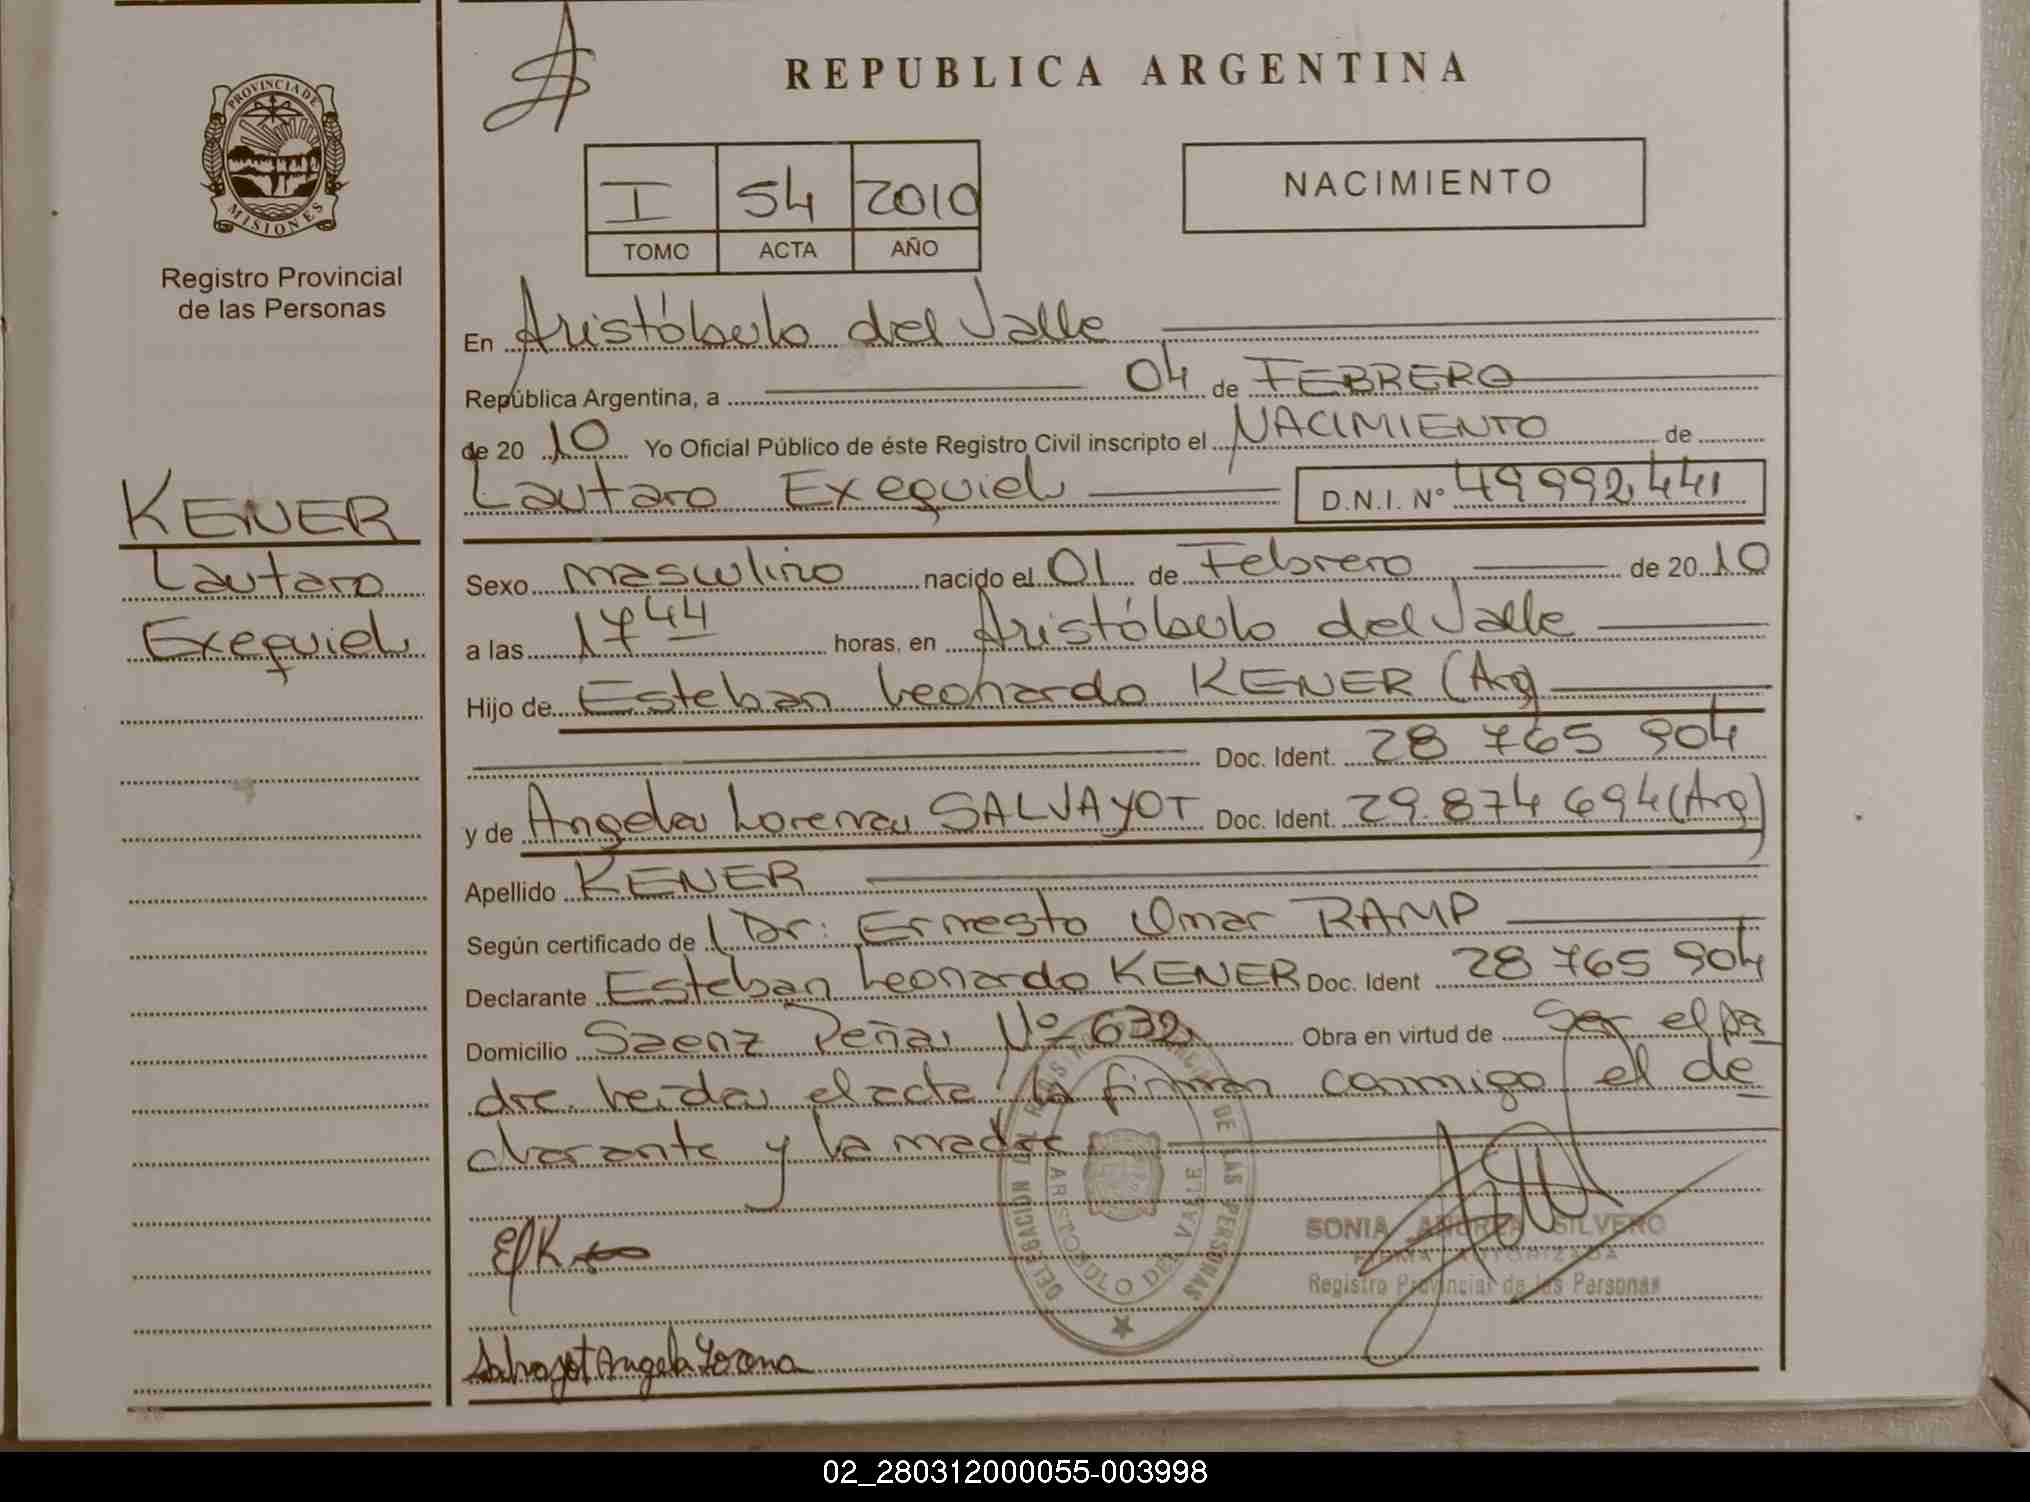 PROVINCIA DE
MISIONES
Registro Provincial
de las Personas
KENER
Lautaro
Exequiel
REPUBLICA ARGENTINA
I 54 2010
TOMO ACTA AÑO
NACIMIENTO
En Aristóbulo del Valle
República Argentina, a 04 de FEBRERO
de 20 10 Yo Oficial Público de éste Registro Civil inscripto el NACIMIENTO de
Lautaro Exequiel D.N.I. Nº 49992.441
Sexo masculino nacido el 01 de Febrero de 20 10
a las 17 44 horas, en Aristóbulo del Valle
Hijo de Esteban Leonardo KENER (Arg)
Doc. Ident. 28 765 904
y de Angela Lorena SALVAYOT Doc. Ident. 29.874 694 (Arg)
Apellido KENER
Según certificado de Dr: Ernesto Omar RAMP
Declarante Esteban Leonardo KENER Doc. Ident 28 765 904
Domicilio Saenz Peña Nº 632 Obra en virtud de Ser el pa
dre. Leida el acta la firman conmigo el de
clarante y la madre
DELEGACION DE LAS PERSONAS
ARISTOBULO DEL VALLE
SONIA ANDREA SILVERO
FIRMA AUTORIZADA
Registro Provincial de las Personas
Salvayot Angela Lorena
02_280312000055-003998